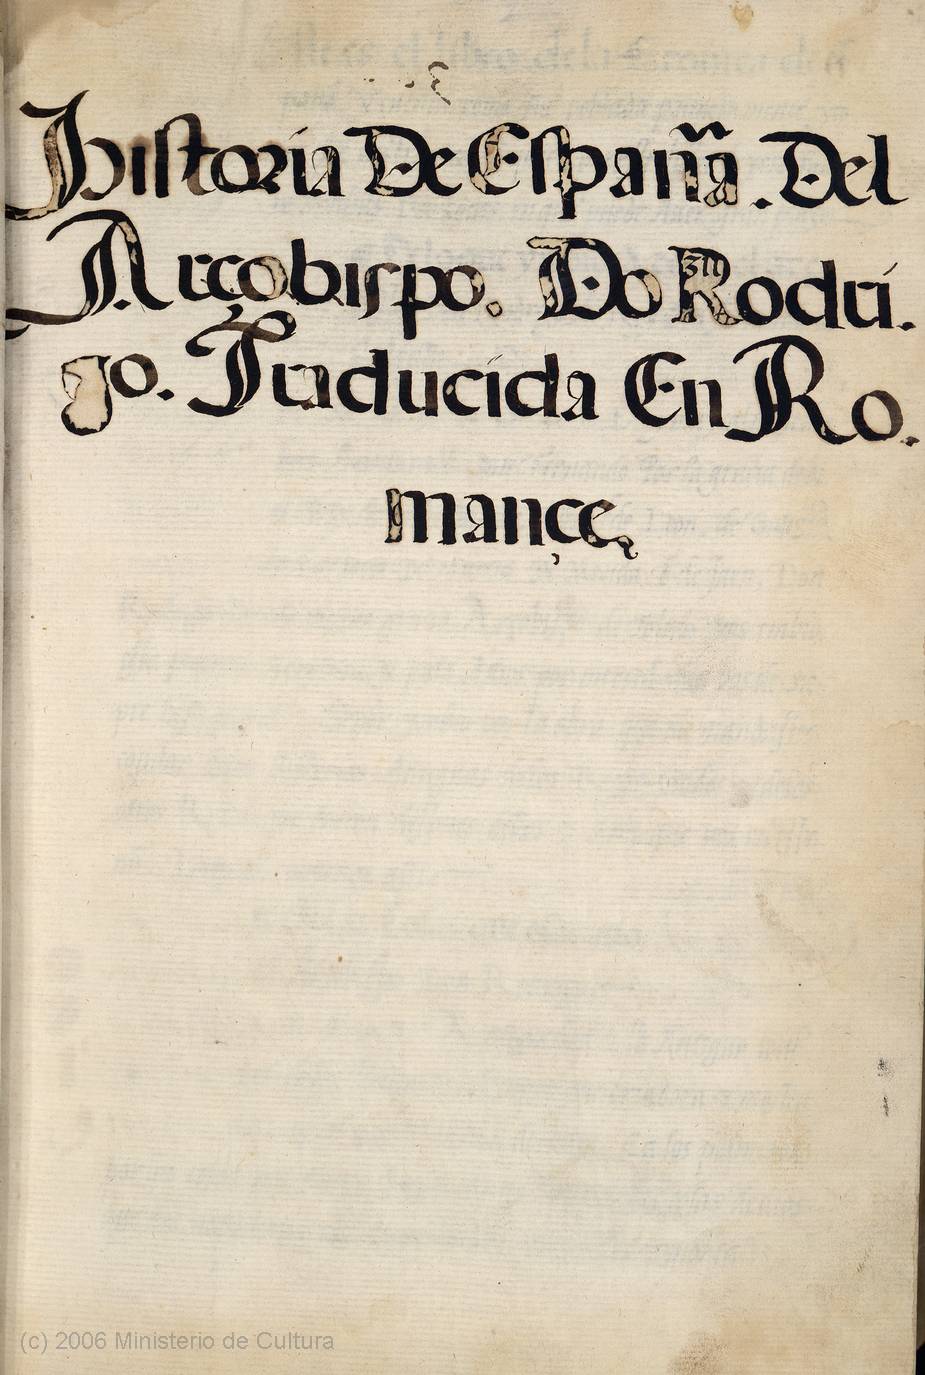 Historia De España. Del
Arçobispo. Do Rodri.
go. Traducida En Ro.
mançe
(c) 2006 Ministerio de Cultura